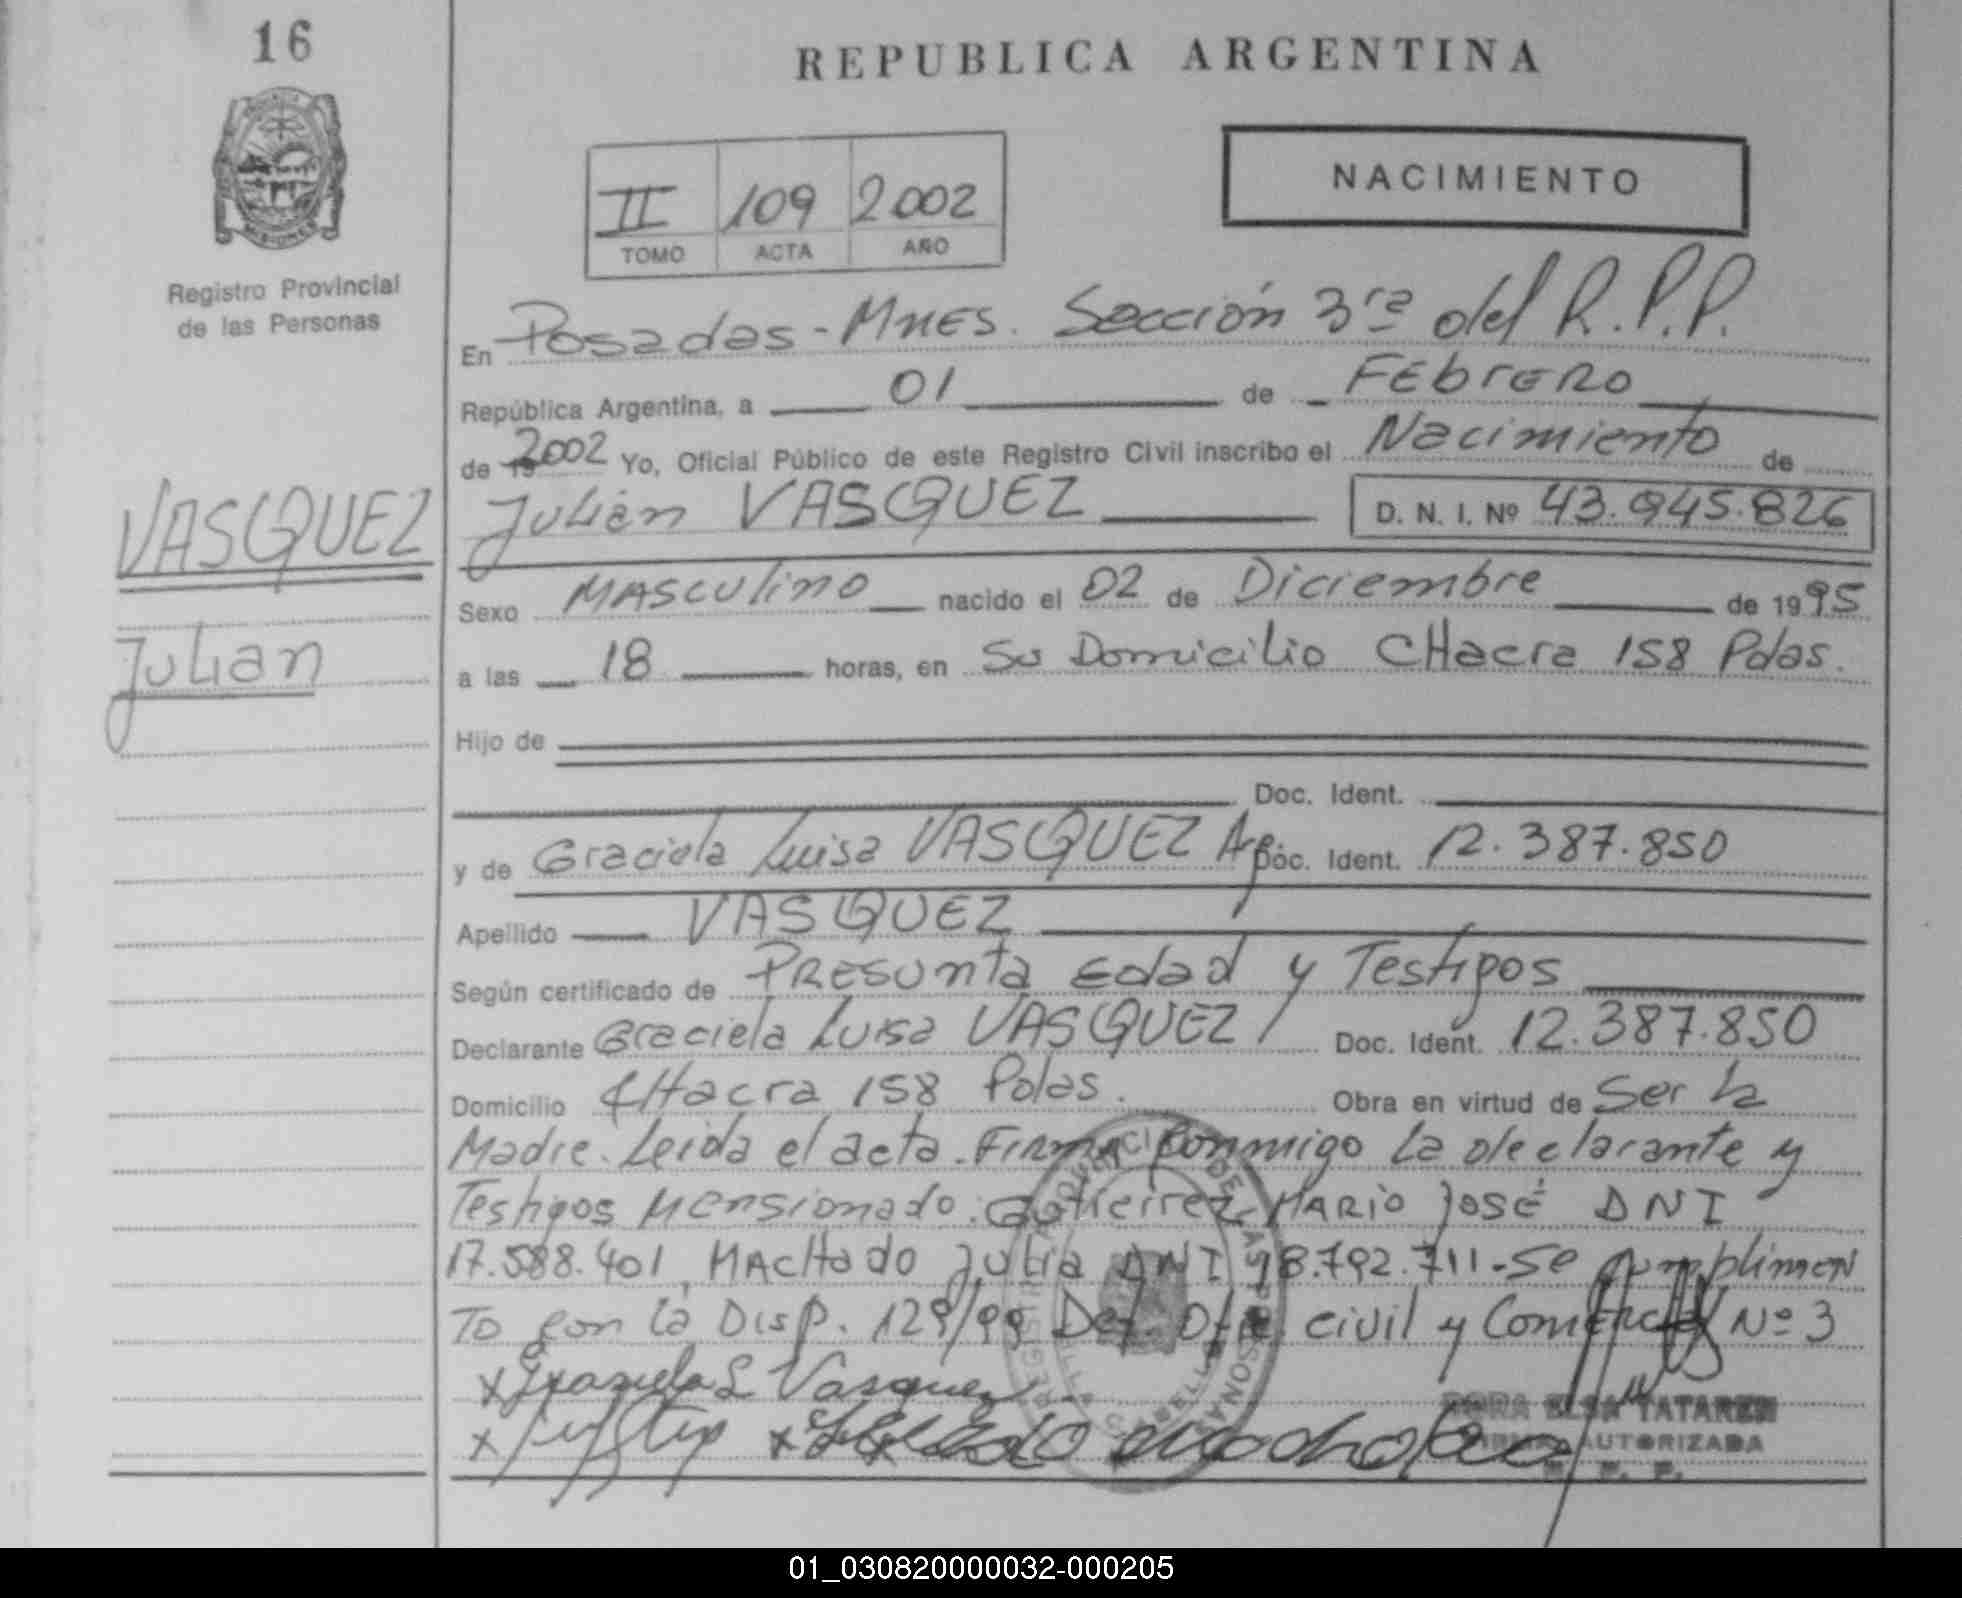 16
REPUBLICA ARGENTINA
NACIMIENTO
II 109 2002
TOMO ACTA AÑO
MISIONES
Registro Provincial
de las Personas
En Posadas - Mnes. Sección 3ra del R.P.P.
República Argentina, a 01 de Febrero
de 2002 Yo, Oficial Público de este Registro Civil inscribo el Nacimiento de
VASQUEZ
Julian
Julián VASQUEZ D. N. I. Nº 43.945.826
Sexo Masculino nacido el 02 de Diciembre de 1995
a las 18 horas, en Su Domicilio CHacra 158 Pdas.
Hijo de
Doc. Ident.
y de Graciela Luisa VASQUEZ Arg. Doc. Ident. 12.387.850
Apellido VASQUEZ
Según certificado de Presunta Edad y Testigos
Declarante Graciela Luisa VASQUEZ Doc. Ident. 12.387.850
Domicilio CHacra 158 Pdas. Obra en virtud de Ser la
Madre. Leida el acta. Firma Conmigo la declarante y
Testigos Mensionado: Gutierrez Mario José DNI
17.588.401, MacHado Julia DNI 18.792.711 - Se cumplimen
To con la Disp. 129/99 Def. Ofic. civil y Comercial Nº 3
x Graziela L Vasquez
x x
DORA ELSA TATAREN
FIRMA AUTORIZADA
R. P. P.
01_030820000032-000205